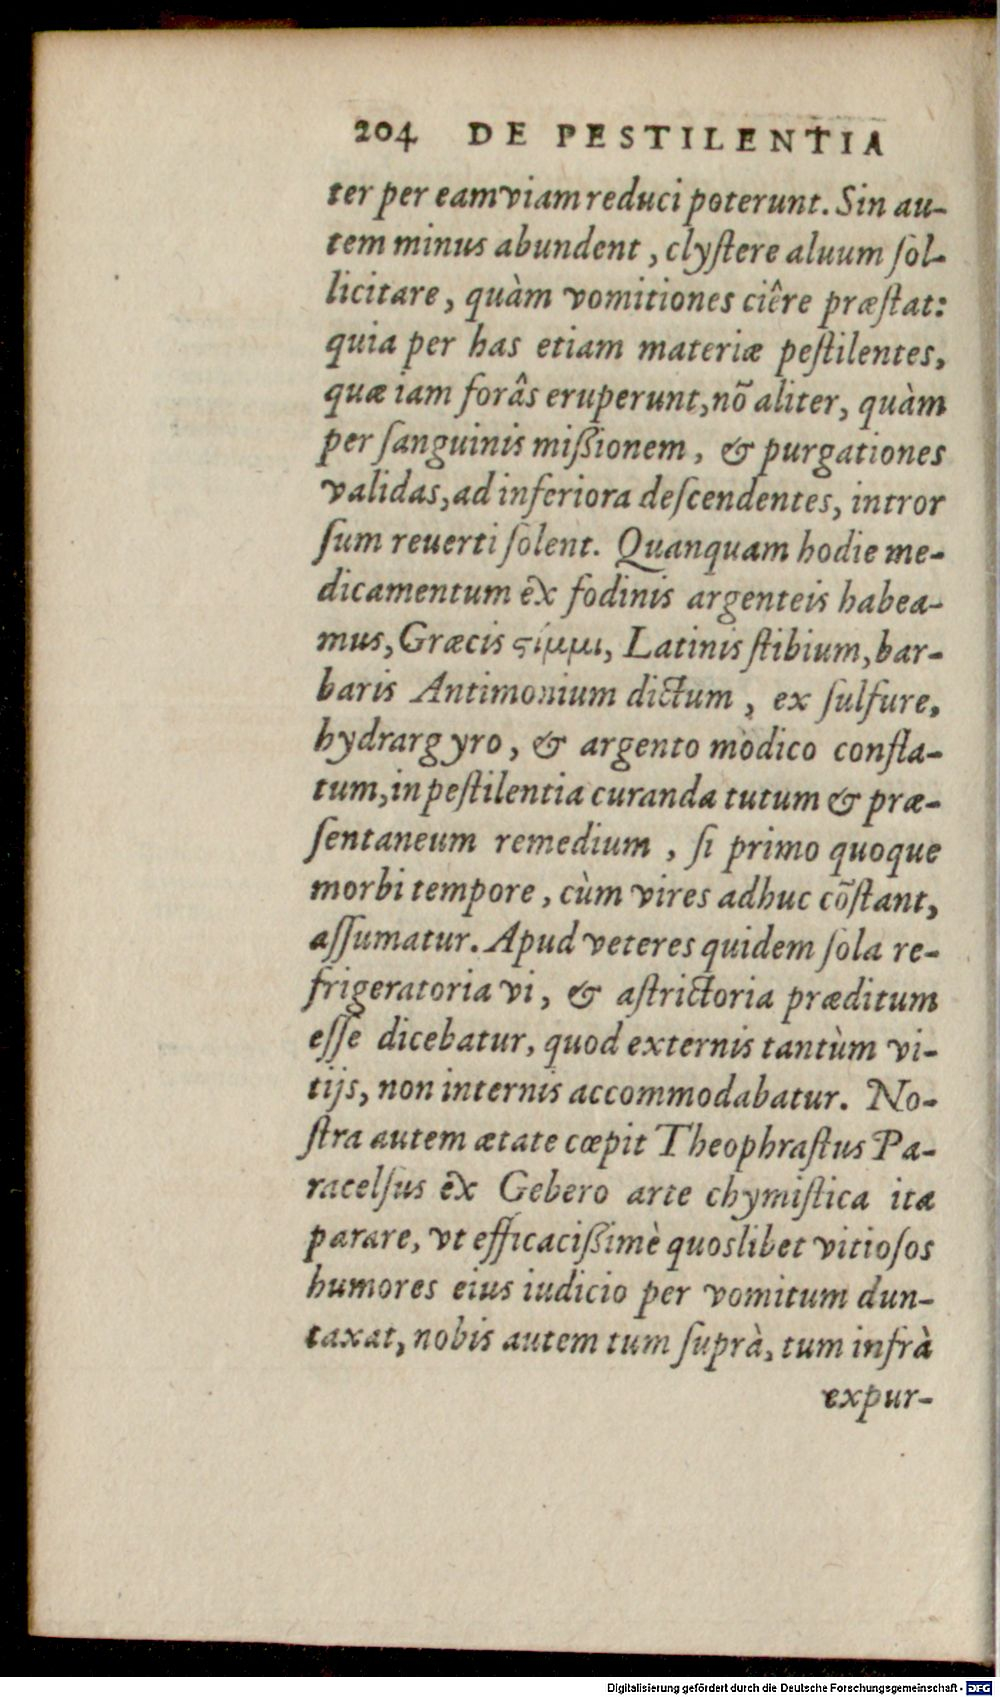 204 DE PESTILENTIA
ter per eam viam reduci poterunt. Sin au-
tem minus abundent, clyſtere aluum ſol-
licitare, quàm vomitiones ciêre præſtat:
quia per has etiam materiæ peſtilentes,
quæ iam forâs eruperunt, nō aliter, quàm
per ſanguinis mißionem, & purgationes
validas, ad inferiora deſcendentes, intror
ſum reuerti ſolent. Quanquam hodie me-
dicamentum ex fodinis argenteis habea-
mus, Græcis ϛίμμι, Latinis ſtibium, bar-
baris Antimonium dictum, ex ſulfure,
hydrargyro, & argento modico confla-
tum, in peſtilentia curanda tutum & præ-
ſentaneum remedium, ſi primo quoque
morbi tempore, cùm vires adhuc cōſtant,
aſſumatur. Apud veteres quidem ſola re-
frigeratoria vi, & aſtrictoria præditum
eſſe dicebatur, quod externis tantùm vi-
tijs, non internis accommodabatur. No-
ſtra autem ætate cœpit Theophraſtus Pa-
racelſus ex Gebero arte chymiſtica ita
parare, vt efficacißimè quoslibet vitioſos
humores eius iudicio per vomitum dun-
taxat, nobis autem tum ſuprà, tum infrà
expur-
Digitalisierung gefördert durch die Deutsche Forschungsgemeinschaft - DFG